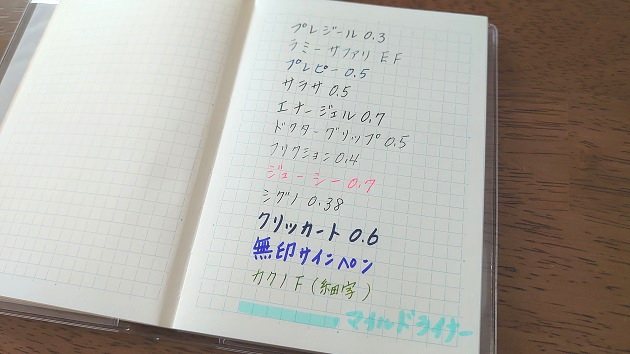 プレジール 0.3
ラミーサファリ EF
プレピー 0.5
サラサ 0.5
エナージェル 0.7
ドクターグリップ 0.5
フリクション 0.4
ジューシー 0.7
シグノ 0.38
クリッカート 0.6
無印サインペン
カクノ F (細字)
マイルドライナー